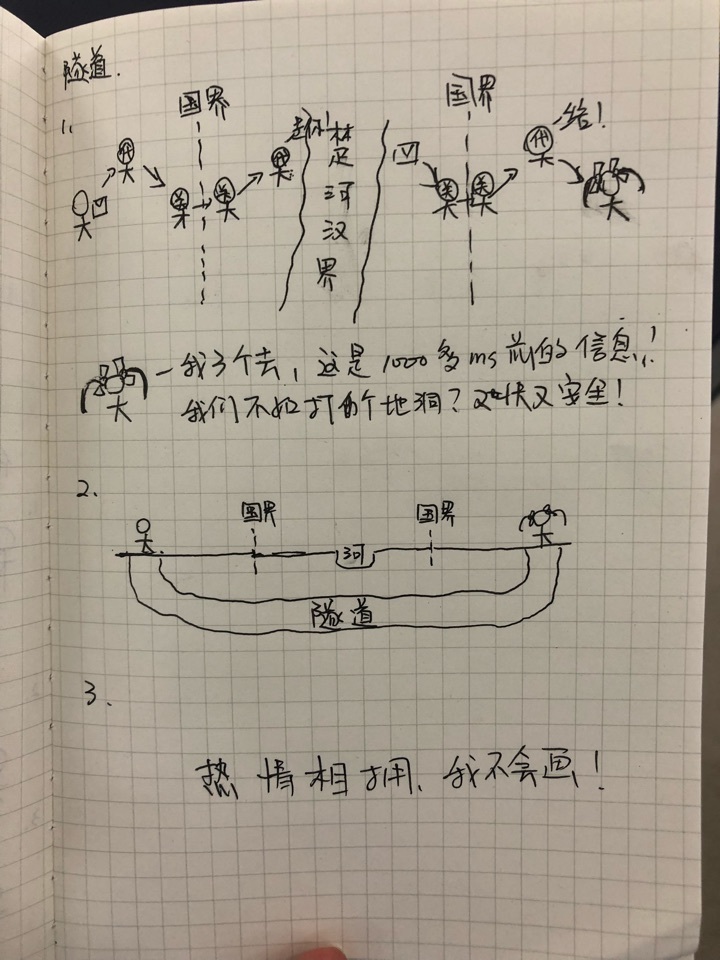 隧道.
1.
国界
国界
凹
代
送
送
代
走你!
楚
河
汉
界
凹
送
送
代
给!
我了个去,这是1000多ms前的信息!
我们不如打个地洞?又快又安全!
2.
国界
国界
河
隧道
3.
热情相拥、我不会画!